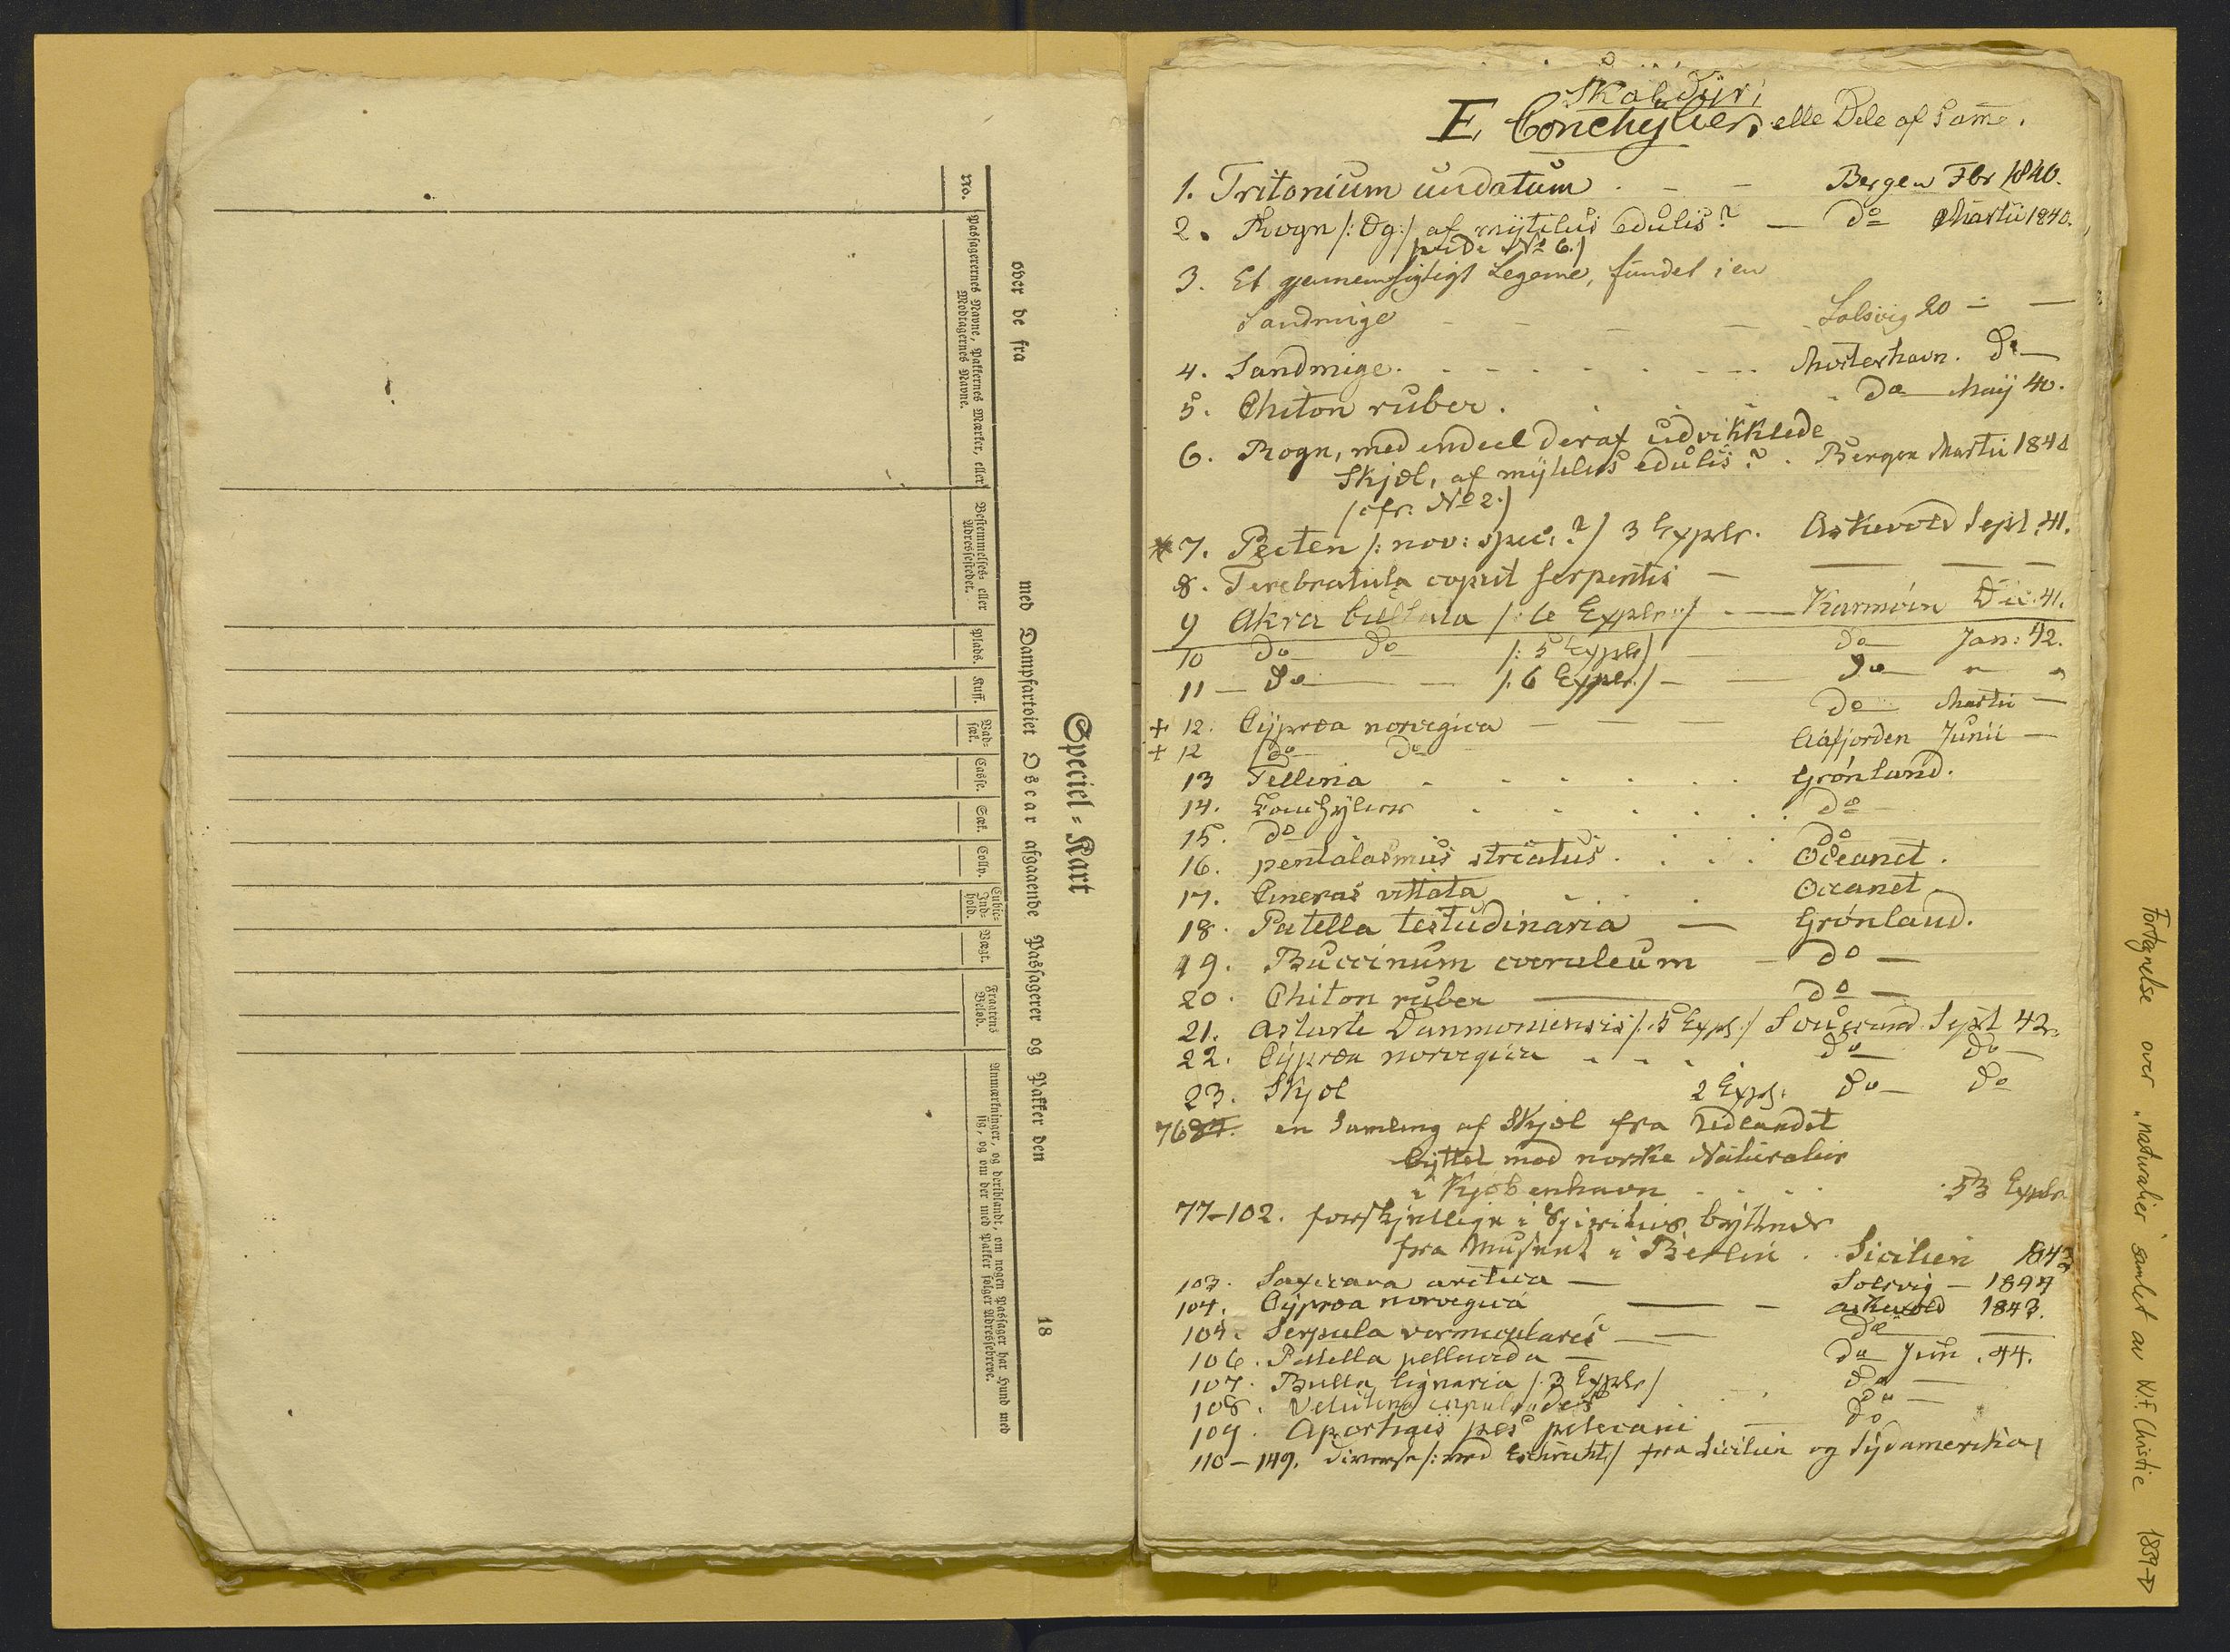 Speciel-Kart
over de fra med Dampfartøiet Oscar afgaaende Passagerer og Pakker den 18
No.
Passagerernes Navne, Pakkernes Mærker, eller
Modtagernes Navne.
Bestemmelses- eller
Adressestedet.
Plads.
Kuff.
Vad-
sæk.
Casse.
Sæk.
Colly.
Cubic-
Ind-
hold.
Vægt.
Fragtens
Beløb.
Anmærkninger, og deriblandt, om nogen Passager har Hund med
sig, og om der med Pakker følger Adressebreve.
Skaldyr,
E, Conchylier, elle Dele af Samme.
1. Tritonium undatum - - Bergen Fbr 1840.
2. Rogn /: Æg :/ af mytilus edulis? - do Martii 1840.
/vide No 6./
3. Et gjennemsigtigt Legeme, fundet i en
Sandmige - - - - Solsvig 20 - -
4. Sandmige. - - - - Mosterhavn. do -
5. Chiton ruber. do Maij 40.
6. Rogn, med endeel deraf udvikklede
Skjæl, af mytilus edulis? . Bergen Martii 1840
/cfr. No 2./
* 7. Pecten /: nov: spec: ?/ 3 Explr. Askevold Sept. 41.
8. Terebratula caput serpentis - - - -
9 Akra bullata /: 6 Explr :/ - - Karmöen Dec. 41.
10 do do /: 5 Explr/ do Jan: 42.
11 - do - - /: 6 Explr./ - - do " "
+ 12. Cypræa norvegica - - do Martii -
+ 12 /do do - Aafjorden Junii -
13 Tellina . . . . . Grönland.
14. Conchylier . . . . do -
15. do . . . . do
16. pentalasmus striatus. . . . Oceanet.
17. Cineras vittata . . . Oceanet
18. Patella testudinaria - Grönland.
19. Buccinum coeruleum - do -
20. Chiton ruber - do -
21. Astarte Danmoniensis /: 5 Expl:/ Sept 42.
22. Cypræa norvegica . . . . do - do -
23. Skjæl 2 Expl. do - do
76 24. en Samling af Skjæl fra Udlandet
byttet mod norske Naturalier
i Kjöbenhavn . . . . 53 Explr
77-102. forskjellige i Spiritus byttede
fra Museet i Berlin . . Sicilien 1843
103. Saxicava arctica - Solsvig - 1844
104. Cypræa norvegica - - Askevold 1843.
105. Serpula vermicularis - - do -
106. Patella pellucida - do Juni . 44.
107. Bulla lignaria /: 3 Explr/ do -
108. Velutina . . do -
109. Aporhais pes pelecani - do
110-149. diverse /: med Eschricht:/ fra Sicilien og Sydamerika,
Fortegnelse over "naturalier" samlet av W.F. Christie 1839-